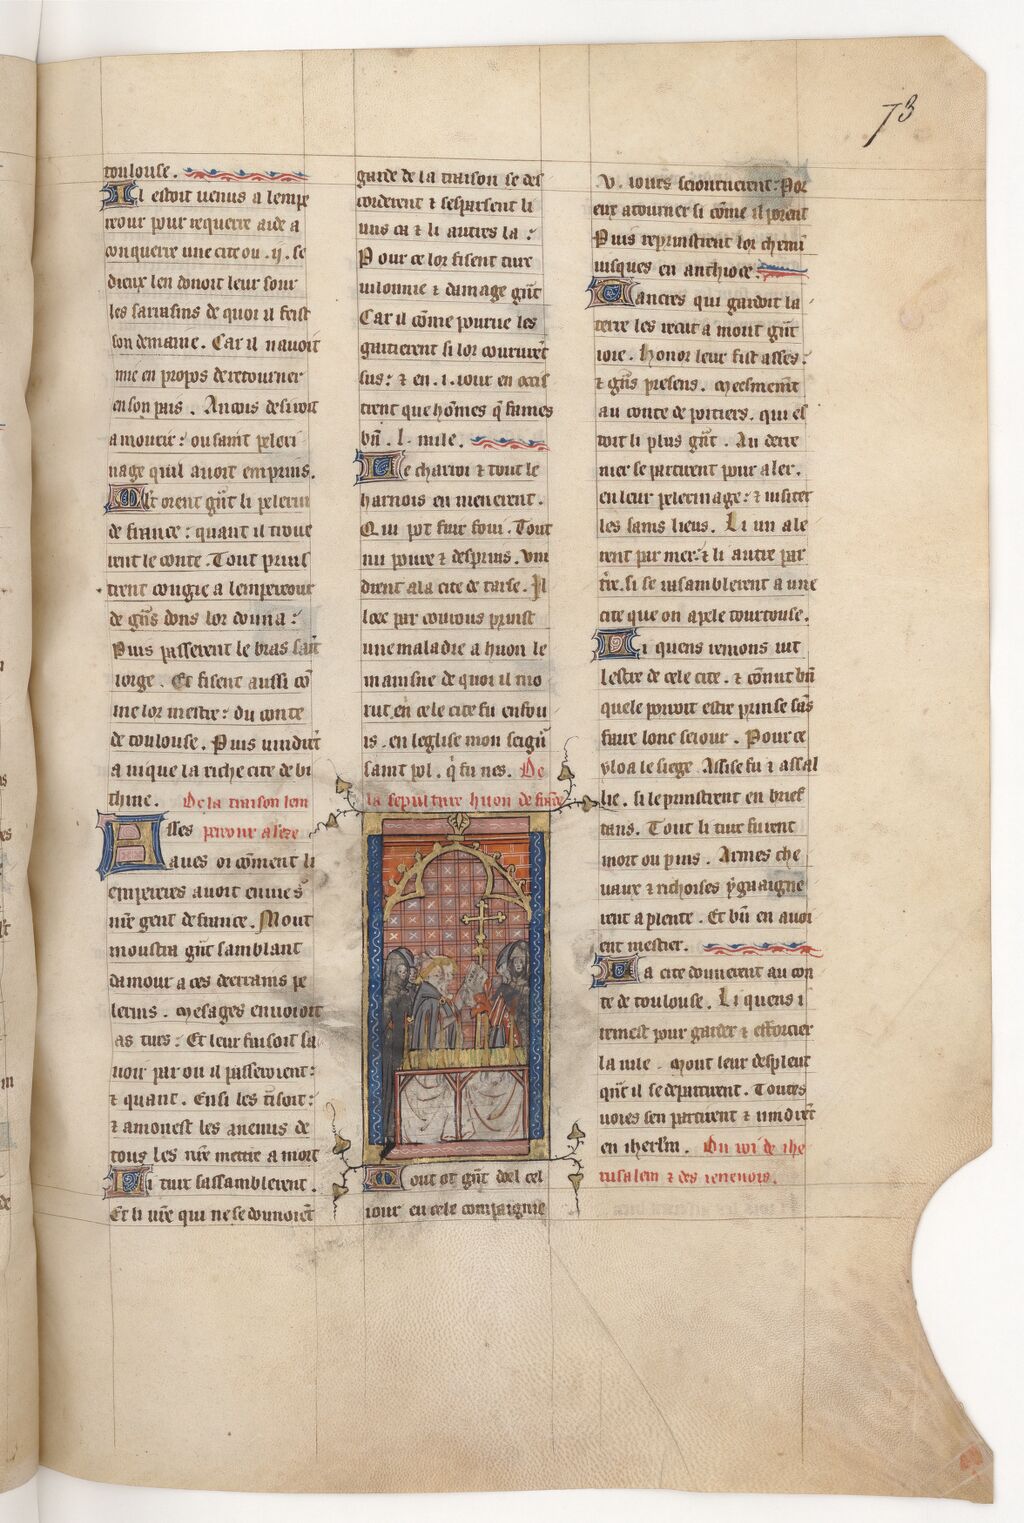 73
toulouse.
Il estoit uenus a lempe
reour pour requerre aide a
conquerre une cite ou .ij. se
dieux len donoit leur sour
les sarrasins de quoi il feist
son demaine. Car il nauoit
mie en propos de retourner
en son pais. Ancois desiroit
a mourir: ou saint peleri
nage quil auoit empris.
Mlt orent gn̄t li pelerin
de france: quant il trouue
rent le conte. Tout pris
trent congie a lempereour
de gn̄s dons lor donna:
Puis passerent le bras saīt
iorge. Et fisent aussi cō
me lor mestre: du conte
de toulouse. Puis uindrēt
a nique la riche cite de bi
thine. De la traison lem
Asses pereour alexe
aues oi cōment li
empereres auoit enuies
nr̄e gent de france. Mout
moustra gn̄t samblant
damour a ces derrains pe
lerins. Mesages enuoioit
as turs: Et leur faisoit sa
uoir par ou il passeroient:
⁊ quant. Ensi les tīsoit:
⁊ amonest les anemis de
tous les nr̄e metre a mort
Li turc sassamblerent.
Et li nr̄e qui ne se donnoiēt
garde de la traison se des
corderent ⁊ sespartirent li
uns ca ⁊ li autres la:
Pour ce lor fisent turc
uilonnie ⁊ damage gn̄t
Car il cōme pourue les
gaitierent si lor coururēt
sus: ⁊ en .i. iour en ocis
trent que hōmes q̄ fames
bn̄ .l. mile.
Le charroi ⁊ tout le
harnois en menerent.
Qui pot fuir foui. Tout
nu poure ⁊ despris. Vin
drent a la cite de tarse. Il
loec par couuous prinst
une maladie a huon le
mainsne de quoi il mo
rut en cele cite fu enfou
is. en leglise mon seignr̄
saint pol. q̄ fu nes. De
la sepulture huon de frāce
Mout ot gn̄t doel cel
iour en cele compaignie
.v. iours seiournerent: Por
eux atourner si cōme il porent
Puis reprinstrent lor chemī
iusques en anthioce.
Tancres qui gardoit la
terre les recut a mout gn̄t
ioie. honor leur fist asses:
⁊ gn̄s presens. Meesmemēt
au conte de poitiers. qui es
toit li plus gn̄t. Au derre
nier se partirent pour aler.
en leur pelerinage: ⁊ uisiter
les sains lieus. Li un ale
rent par mer: ⁊ li autre par
tr̄e. si se rasamblerent a une
cite que on apele tourtouse.
Li quens remons uit
lestre de cele cite. ⁊ cōnut bn̄
quele porroit estre prinse sās
faire lonc seiour. Pour ce
vloa le siege Assise fu ⁊ assal
lie. si le prinstrent en brief
tans. Tout li turc furent
mort ou pris. Armes che
uaux ⁊ richoises y gaaigne
rent a plente. Et bn̄ en auoi
ent mestier.
La cite donnerent au con
te de toulouse. Li quens i
remest pour garder ⁊ efforcier
la uile. Mout leur despleut
qn̄t il se departirent. Toutes
uoies sen partirent ⁊ uindrēt
en iherl̄m. Du roi de ihe
rusalem ⁊ des ienenois.